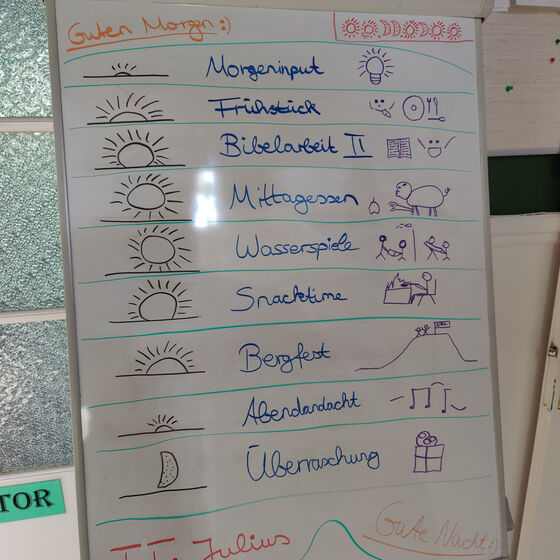 Guten Morgen :)
Morgeninput
Frühstück
Bibelarbeit II
Mittagessen
Wasserspiele
Snacktime
Bergfest
Abendandacht
Überraschung
TOR
Julius
Gute Nacht :)